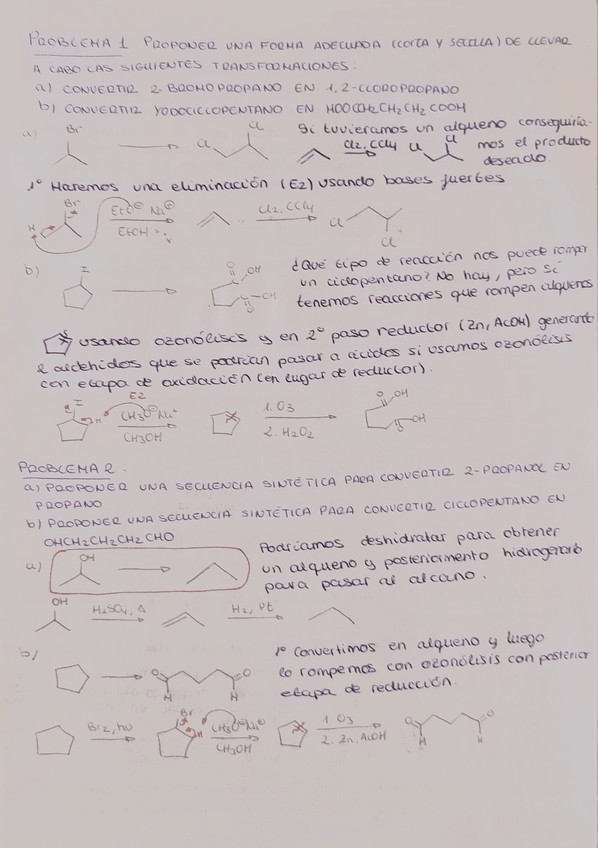 PROBLEMA 1 PROPONER UNA FORMA ADECUADA (CORTA Y SECILLA) DE LLEVAR
A CABO LAS SIGUIENTES TRANSFORMACIONES:
a) CONVERTIR 2-BROMOPROPANO EN 1,2-CLOROPROPANO
b) CONVERTIR YODOCICLOPENTANO EN HOOCCH2CH2CH2COOH
a) Br Cl Cl
Si tuvieramos un alqueno conseguiría-
Cl2, CCl4 Cl Cl mos el producto
deseado.
1º Haremos una eliminación (E2) usando bases fuertes
H Br EtO⊖ Na⊕ Cl2, CCl4 Cl
EtOH Cl
b) I O OH O OH
¿Qué tipo de reacción nos puede romper
un ciclopentano? No hay, pero sí
tenemos reacciones que rompen alquenos
usando ozonólisis y en 2º paso reductor (Zn, AcOH) generando
2 aldehidos que se podrían pasar a ácidos si usamos ozonólisis
con etapa de oxidación (en lugar de reductor).
I H E2 CH3O⊖Na⊕ 1. O3 O OH
CH3OH 2. H2O2 O OH
PROBLEMA 2.
a) PROPONER UNA SECUENCIA SINTÉTICA PARA CONVERTIR 2-PROPANOL EN
PROPANO
b) PROPONER UNA SECUENCIA SINTÉTICA PARA CONVERTIR CICLOPENTANO EN
OHCH2CH2CH2CHO
a) OH
Podríamos deshidratar para obtener
un alqueno y posteriormento hidrogenarlo
para pasar al alcano.
OH H2SO4, Δ H2, Pt
b)
O H O H
1º Convertimos en alqueno y luego
lo rompemos con ozonólisis con posterior
etapa de reducción.
Br2, hν Br H CH3O⊖Na⊕ 1. O3 O H O H
CH3OH 2. Zn, AcOH